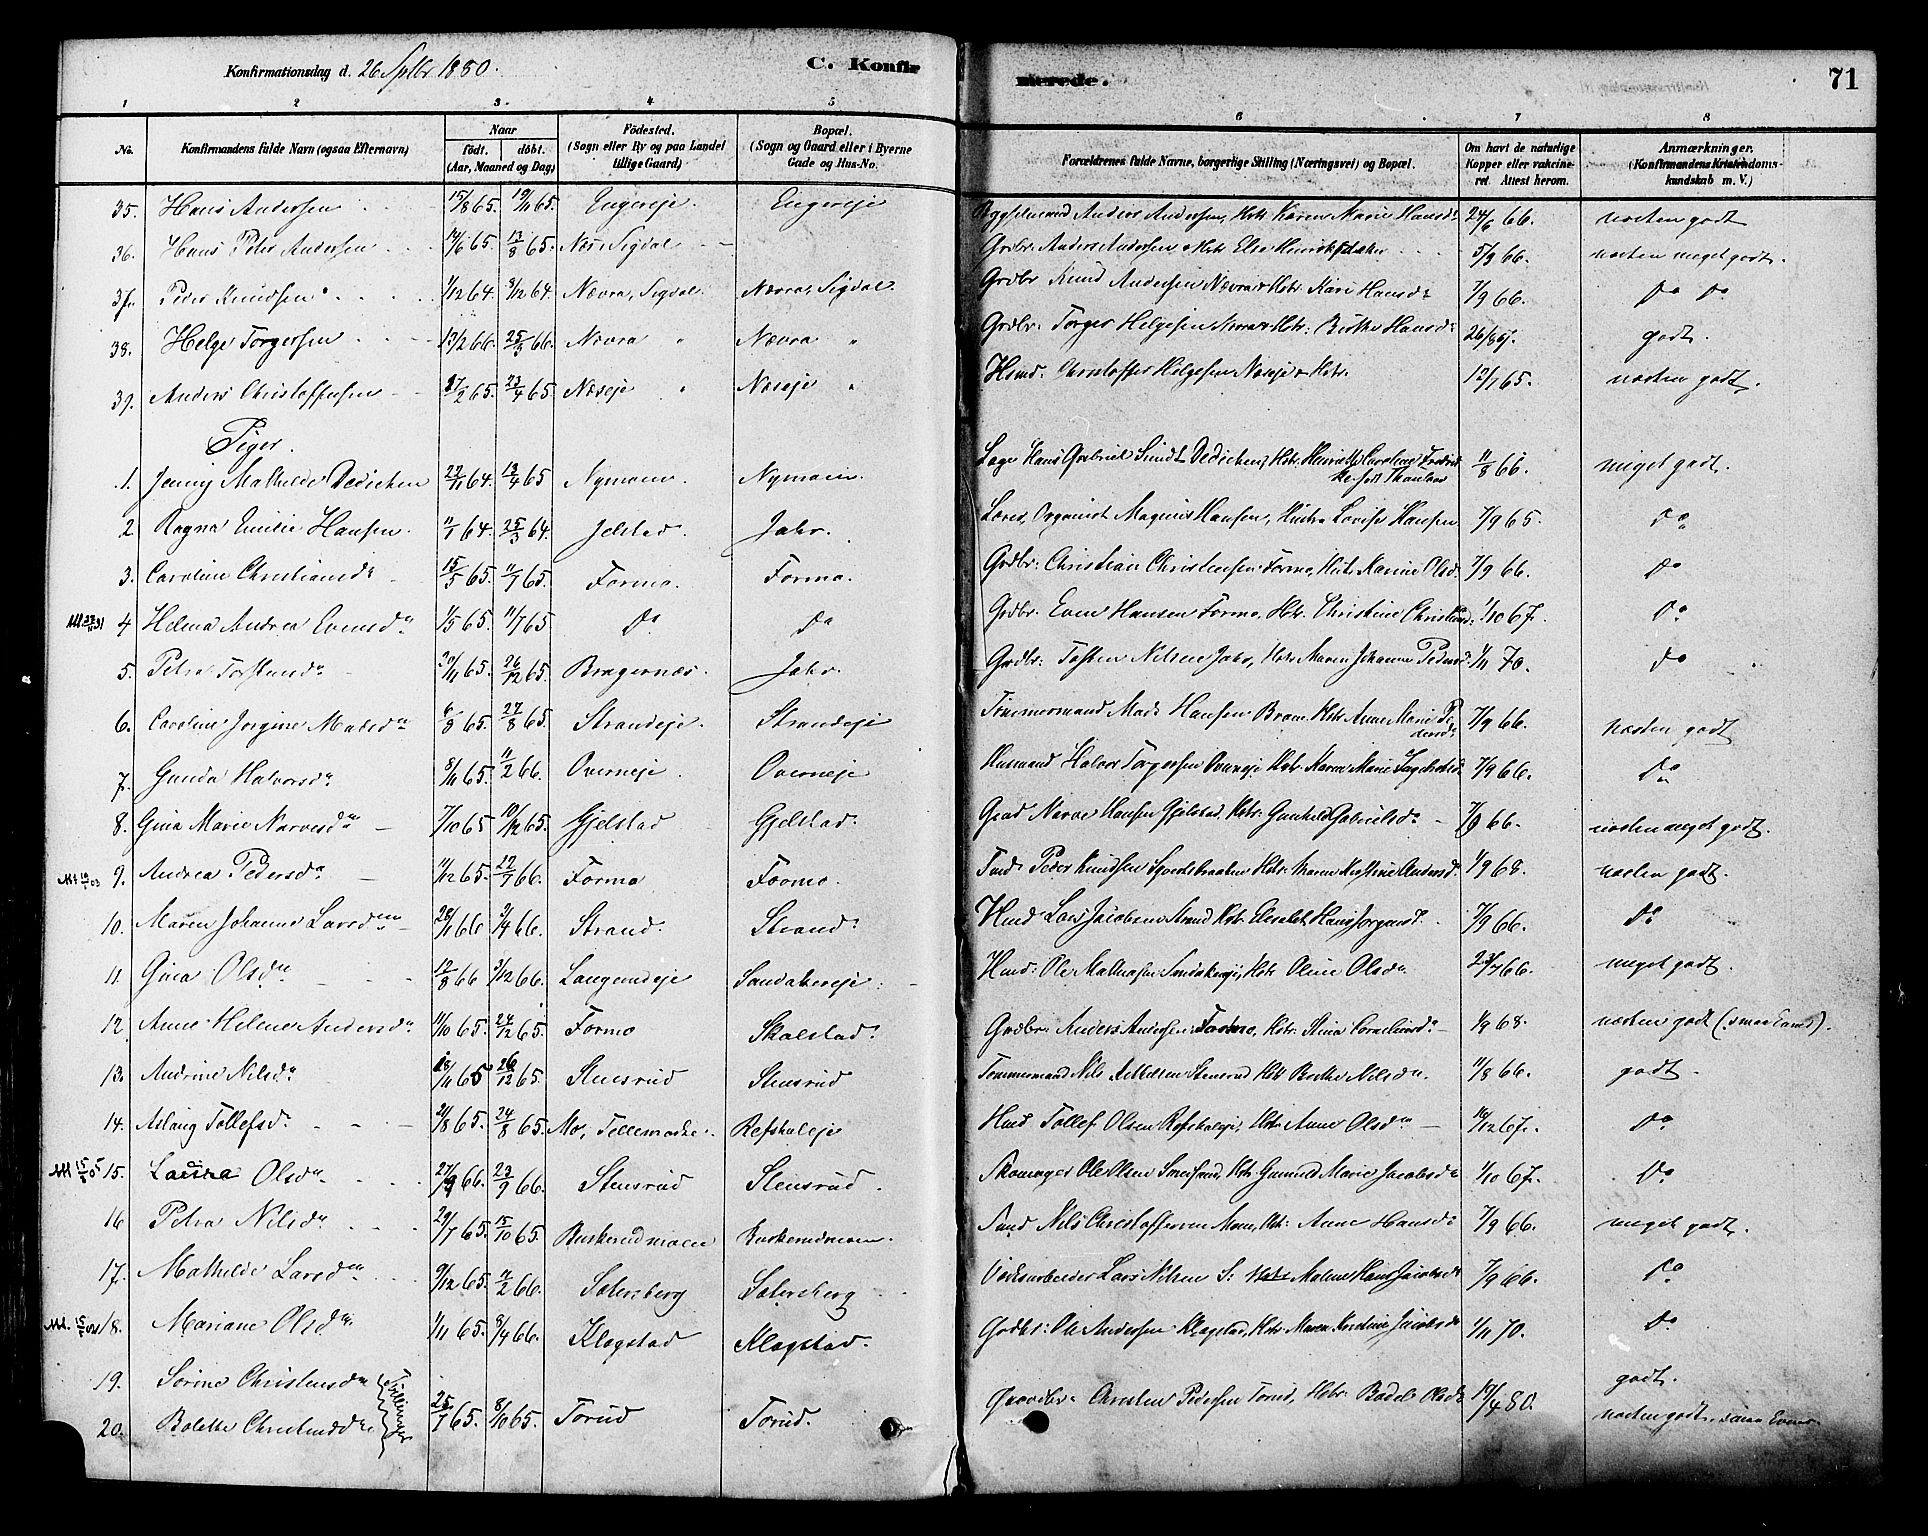 Konfirmationsdag d. 26 Sptbr 1880.
C. Konfirmerede.
71
1 2 3. 4 5 6 7 8
No. Konfirmandens fulde Navn (ogsaa Efternavn) Naar født. døbt. (Aar, Maaned og Dag) Fødested. (Sogn eller By og paa Landet tillige Gaard) Bopæl. (Sogn og Gaard eller i Byerne Gade og Hus-No. Forældrenes fulde Navne, borgerlige Stilling (Næringsvei) og Bopæl. Om havt de naturlige Kopper eller vakcineret. Attest herom. Anmærkninger. (Konfirmandens Kristendomskundskab m. V.)
35. Hans Andersen 15/8 65. 19/11 65. Engereje. Engereje Anders Andersen, Hstr Karen Marie Hansdr 24/6 66. næsten godt
36. Hans Peter Andersen 14/6 65. 13/8 65. Næs Sigdal Grdbr. Anders Andersen Hstr Else 5/9 66. næsten meget godt.
37. Peder Knudsen 1/12 64. 8/12 64. Nævra, Sigdal Nævra, Sigdal Grdbr Knud Andersen Nævra Hstr Kari Hansdr 7/9 66. Do Do
38. Helge Torgersen 13/2 66. 25/3 66. Nævra " Nævra " Grdbr: Torger Helgesen Nævra Hstr: Berthe Hansdr godt.
39. Anders Christoffersen 17/2 65. 23/4 65 Næseje " Næseje " Hsmd: Christoffer Helgesen Næseje Hstr. 12/7 65. næsten godt.
Piger.
1. Jenny Mathilde Dedichen 29/11 64. 19/4 65 Nymoen. Nymoen. Læge Hans Gabriel Sundt Dedichen, Hstr. Henriette Caroline 11/8 66. meget godt.
2. Ragna Emilie Hansen. 11/1 64. 25/3 64. Jelstad. Jahr. Lærer, Organist Magnus Hansen, Hustru Lovise Hansen 7/9 65. Do
3. Caroline Christiansdr 15/5 65. 11/7 65. Formo. Formo. Grdbr: Christian Christensen Formo, Hstr Karine Olsdr. 7/9 66. Do
4 Helena Andrea Evensdr 1/5 65. 11/7 65 Do Do Grdbr. Even Hansen Formo, Hstr. Christine 1/10 67. Do
5. Petra 30/11 65. 26/12 65. Bragernæs. Jahr. Grdbr: Nilsen Jahr, Hstr Maren Johanne Pedersdr 1/11 70. Do
6. Caroline Jorgine Madsdr 6/8 65. 27/8 65. Strandeje. Strandeje Tømmermand Mads Hansen Hstr. Anne Marie Pedersdr 7/9 66. næsten godt
7. Gunda Halvorsdr 8/11 65. 11/2 66. Overneje. Overneje Husmand Halvor Torgersen Overneje Hstr. Karen Marie 7/9 66. Do
8. Gina Marie Narvesdr 7/10 65 10/12 65. Gjelstad Gjelstad. Narve Hansen Gjelstad Hstr: Gunhild Gabrielsdr 7/9 66. næsten meget godt.
9. Andrea Pedersdr 11/12 65. 17/7 66. Formo Formo. Peder Knudsen Hstr. Maren Kristine Andersdr 1/9 68. næsten godt.
10. Maren Johanne Larsdr 28/1 66 2/4 66. Strand. Strand. Hmd Lars Jacobsen Strand Hstr. 7/9 66. Do
11. Gina Olsdr 12/8 66 3/12 66. Langemdeje Sandakereje Hmd: Ole Mathisen Sandakereje, Hstr Oline Olsdr 23/7 66. meget godt.
12 Anne Helene Andersdr 11/10 65. 24/12 65. Formo Skalstad. Grdbr: Anders Andersen Formo, Hstr. Stina 1/9 68. næsten godt (smaa Evner).
13. Andrine Nilsdr 18/11 65 26/12 65. Stensrud Stensrud Tømmermand Nils Stensrud Hstr Berthe Nilsdr. 11/8 66. godt.
14. Aslaug Tollefsdr 21/8 65. 24/8 65. Mo, Tellemarken. Refskaleje Hmd Tollef Olsen Refskaleje, Hstr Anne Olsdr 16/12 67. Do
15. Laura Olsdr. 27/9 66. Stensrud Stensrud. Skomager Ole Olsen Hstr. Gunnild Marie Jacobsdr 1/10 67. Do
16 Petra Nilsdr 29/7 65. 15/10 65. Buskerudmoen Buskerudmoen. Nils Christoffersen Moen, Hstr: Anne Hansdr 7/9 66. meget godt.
17. Mathilde Larsdr 9/12 65. 11/2 66. Satersberg Satersberg Værksarbeider Lars Nilsen S: Hstr Malene 7/9 66. Do
18. Mariane Olsdr 1/11 65. 8/4 66. Klogstad Klogstad. Grdbr: Ole Andersen Klogstad, Hstr. Maren Kristine Jacobsdr 1/11 70. Do
19. Sørine Christensdr godt.
20. Bolette Christensdr Tvillinger 25/7 65. 8/10 65. Torud Torud. Gaardbr. Christen Pedersen Torud, Hstr Bodel Olsdr 17/4 80. næsten godt. smaa Evner.